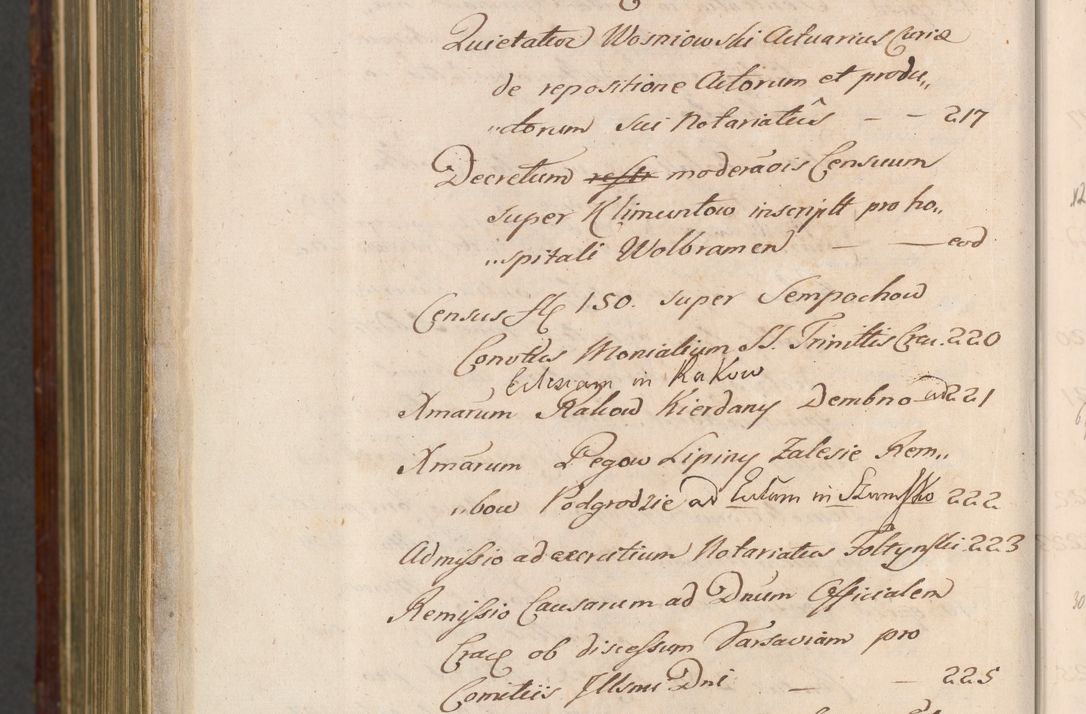 Quietatior Wosniowski Actuarius Curiæ
de repositione Actorum et produ„
„ctorum sui Notariatûs – – 217
Decretum restr moderãois Censuum
super Klimuntow inscriptt pro ho„
„spitali Wolbramen – — eod
Census fl 150. super Sempochow
Convttus Monialium SS. Trinittis Crac. 220
Ecclesiam in Rakow
Xmarum Rakow Kierdany Dembno ad 221
Xmarum Pegow Lipiny Zalesie Rem„
„bow Podgrodzie ad Ecclam in Szumsko 222
Admissio ad exercitium Notariatus Foltynski 223
Remissio Causarum ad Dnum Officialem
Crac ob discessum Varsaviam pro
Comitiis Illsmi Dni – – 225